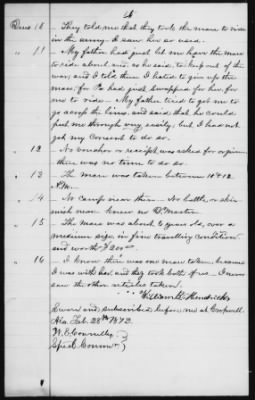 Ques 10 They told me that they took the mare to ride
in the army. I saw her so used.
" 11 My father had just let me have the mare
to ride about and, as he said, to keep out of the
war, and I told them I hated to give up the
mare, for Pa had just swapped for her, for
me to ride. My father tried to get me to
go across the lines, and said that he could
put me through very easily, but I had not
got my consent to do so.
" 12 No voucher or receipt was asked for or given
there was no time to do so.
" 13 The mare was taken between 10 & 12
A.M.
" 14 No camp near there. No battle, or skir-
mish near. Knew no Q. Master.
" 15 The mare was about 6 years old, over a
medium size, in fine travelling condition
and worth $200
" 16 I know there was one mare taken, because
I was with her and they took both of us. I never
saw the other articles taken.
William H. Hendricks
Sworn and subscribed before me at Cropwell
Ala. Feb. 28th 1872.
W. E. Connelly
Spec'l Commr